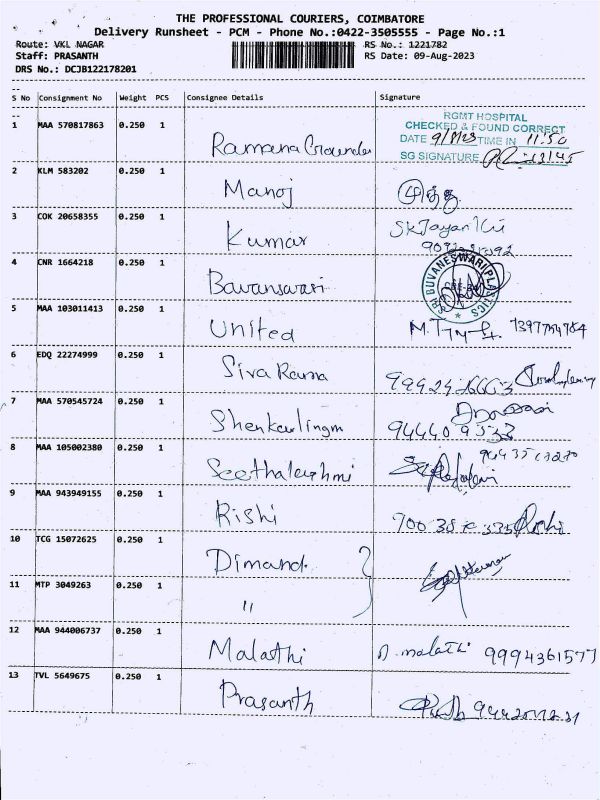 THE PROFESSIONAL COURIERS, COIMBATORE
Delivery Runsheet - PCM - Phone No.:0422-3505555 - Page No.:1
Route: VKL NAGAR RS No.: 1221782
Staff: PRASANTH RS Date: 09-Aug-2023
DRS No.: DCJB122178201
S No Consignment No Weight PCS Consignee Details Signature
RGMT HOSPITAL
CHECKED & FOUND CORRECT
DATE TIME IN 11:50
SG SIGNATURE
1 MAA 570817863 0.250 1 Ramana Gounder
2 KLM 583202 0.250 1 Manoj
3 COK 20658355 0.250 1 Kumar
4 CNR 1664218 0.250 1 Bavanswari SRI BUVANESWARI PLASTICS
5 MAA 103011413 0.250 1 United
6 EDQ 22274999 0.250 1 Siva Rama
7 MAA 570545724 0.250 1 Shenkarlingm
8 MAA 105002380 0.250 1 Seethalakshmi
9 MAA 943949155 0.250 1 Rishi
10 TCG 15072625 0.250 1 Dimand
11 MTP 3049263 0.250 1 "
12 MAA 944006737 0.250 1 Malathi D. malathi 9994361577
13 TVL 5649675 0.250 1 Prasanth